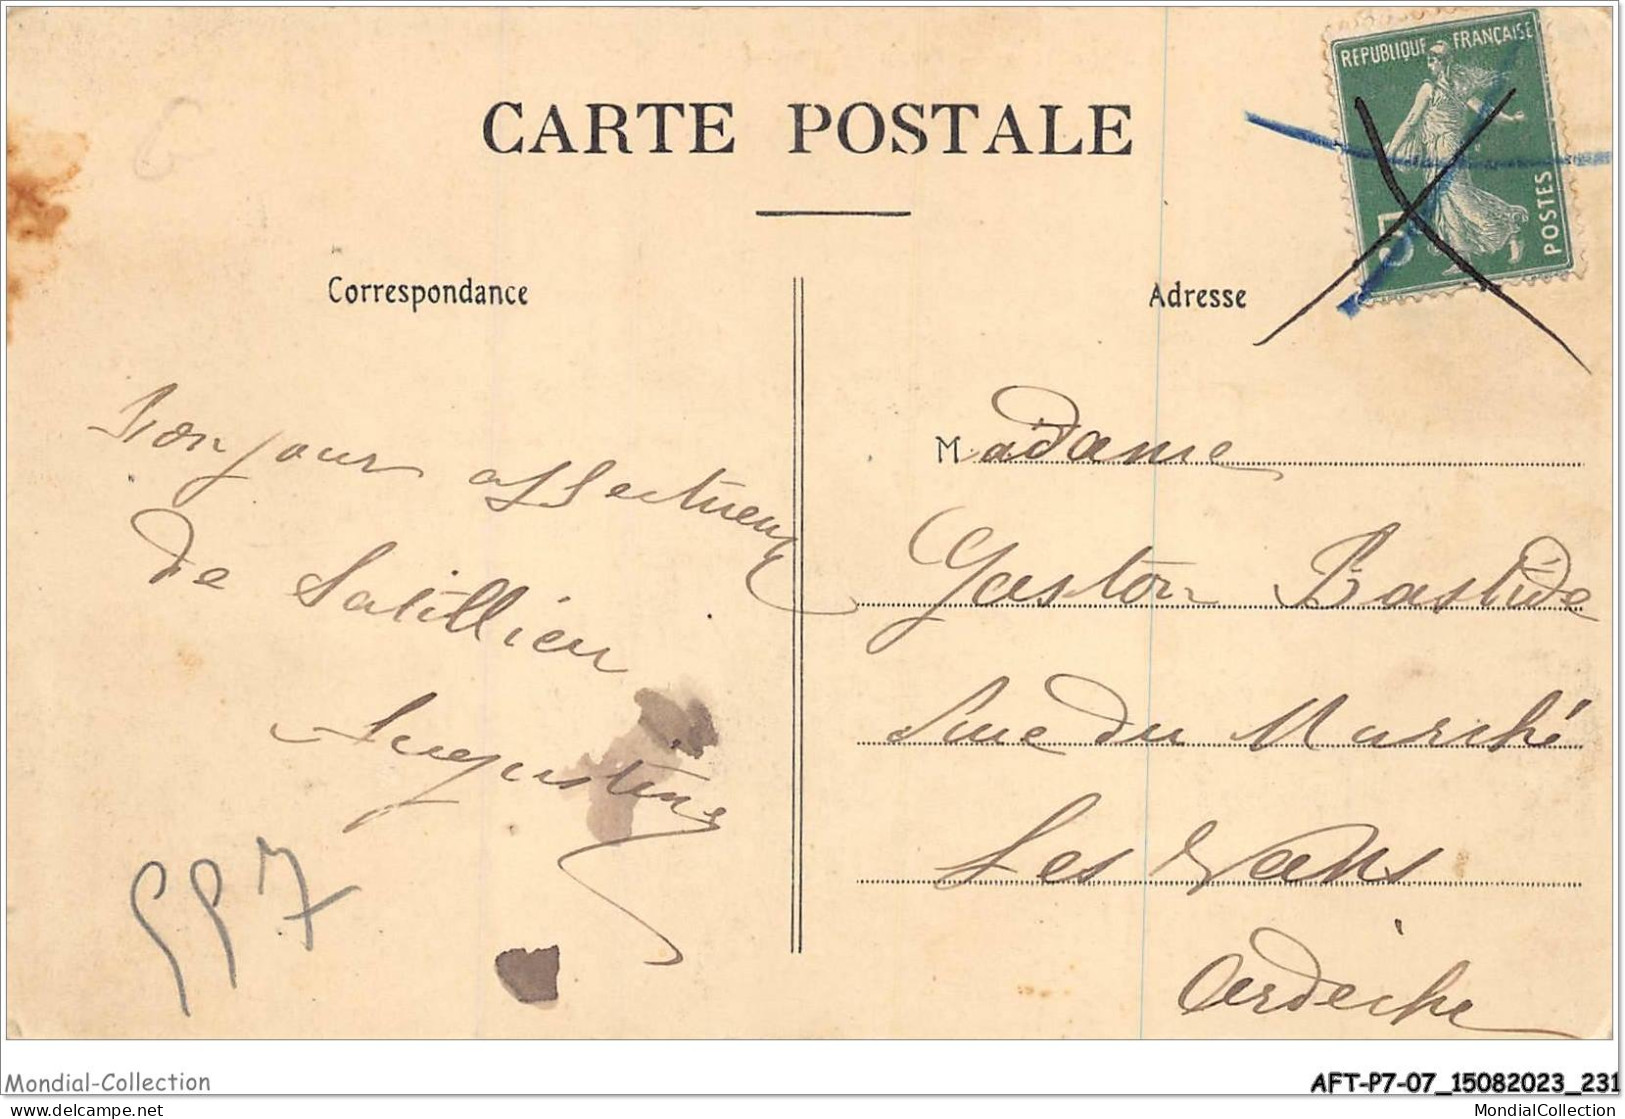 CARTE POSTALE
REPUBLIQUE FRANÇAISE
POSTES
5
Correspondance
Adresse
Bonjour affectueux
de Satillieu
Augustine
Madame
Gaston Bastide
Rue du Marché
Les Vans
Ardèche
997
Mondial-Collection
AFT-P7-07_15082023_231
https://www.delcampe.net
MondialCollection